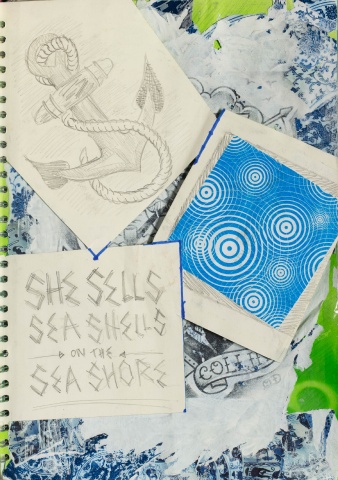 SHE SELLS
SEA SHELLS
ON THE
SEA SHORE